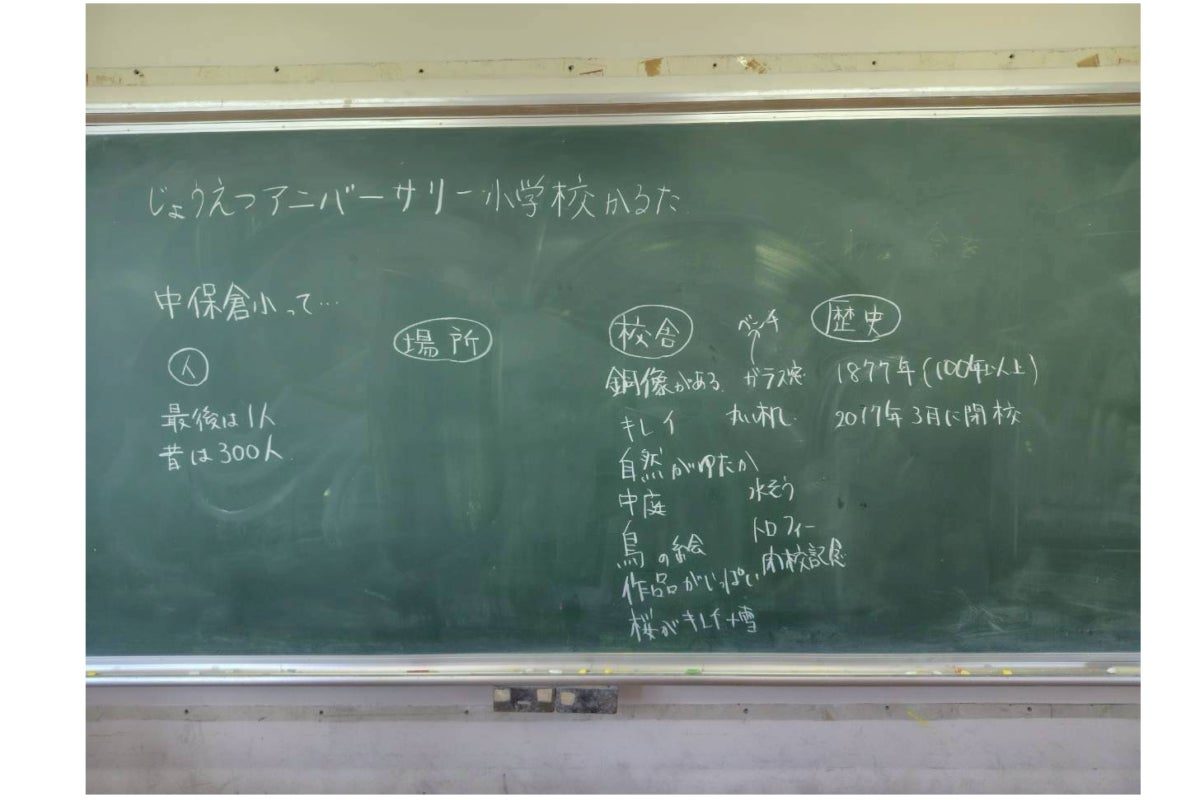 じょうえつアニバーサリー小学校かるた
中保倉小って…
人
最後は1人
昔は300人
場所
校舎
銅像がある
キレイ
自然がゆたか
中庭
鳥の絵
作品がいっぱい
桜がキレイ+雪
ベンチ
ガラス窓
丸い机
水そう
トロフィー
閉校記念
歴史
1877年(100年以上)
2017年3月に閉校